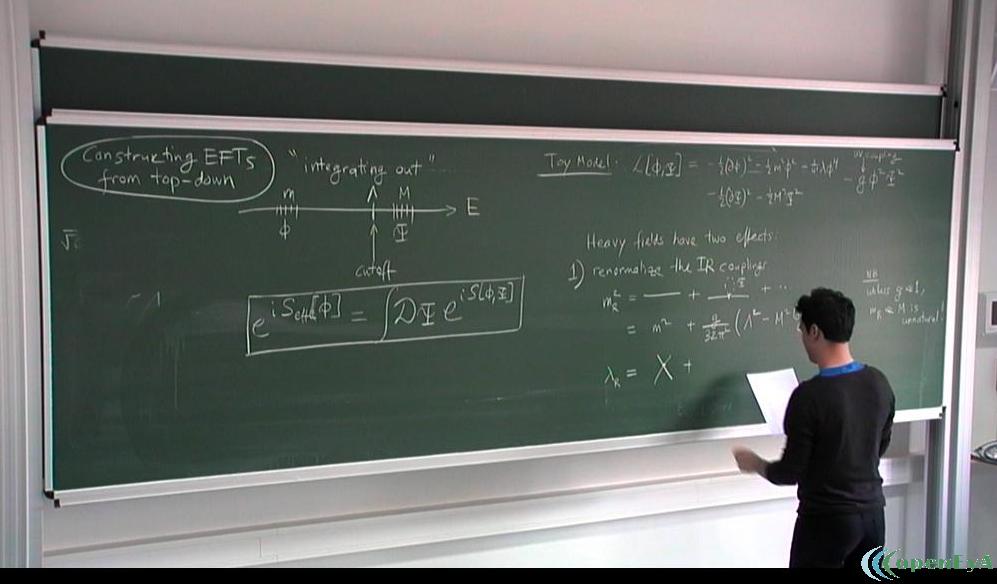 Constructing EFTs
from top-down
"integrating out"
m Λ M
E
ϕ Φ
cutoff
e^{iS_{eff}[ϕ]} = ∫DΦ e^{iS[ϕ,Φ]}
Toy Model: L[ϕ,Φ] = -½(∂ϕ)² - ½m²ϕ² - λϕ⁴ - gϕ²Φ²
UV coupling
-½(∂Φ)² - ½M²Φ²
Heavy fields have two effects:
1) renormalize the IR couplings
m_R² = — + — + ...
= m² + g/32π² (Λ² - M²
λ_R = X +
NB
unless g ≪ 1,
m_R ≪ M is
unnatural!
openEyA